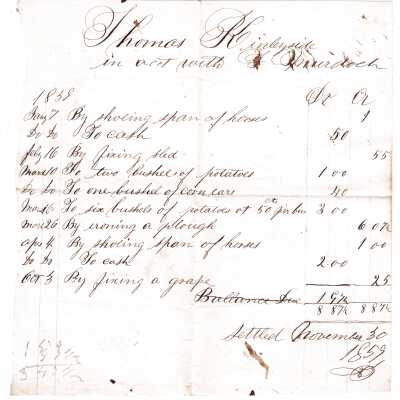 Thomas Kinleyside
in acct with Murdoch
1859 Dr Cr
Jany 7 By shoeing span of horses 1
Do Do To cash 50
Feby 16 By fixing sled 55
Mar 10 To two bushel of potatoes 1 00
Do Do To one bushel of corn ears 40
Mar 16 To six bushels of potatoes at 50 cts per bu 3 00
Mar 26 By ironing a plough 6 07½
Apr 4 By shoeing span of horses 1 00
Do Do To cash 2 00
Oct 3 By fixing a grape 25
Ballance Due 1 97½
8 87½ 8 87½
settled November 30
1859